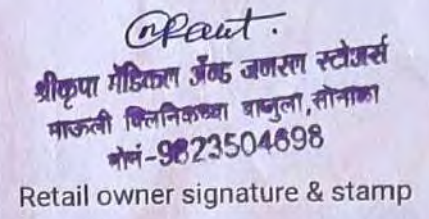 Raut.
श्रीकृपा मेडिकल अ‍ॅण्ड जनरल स्टोअर्स
माऊली क्लिनिकच्या बाजुला,
मोबं-9823504698
Retail owner signature & stamp